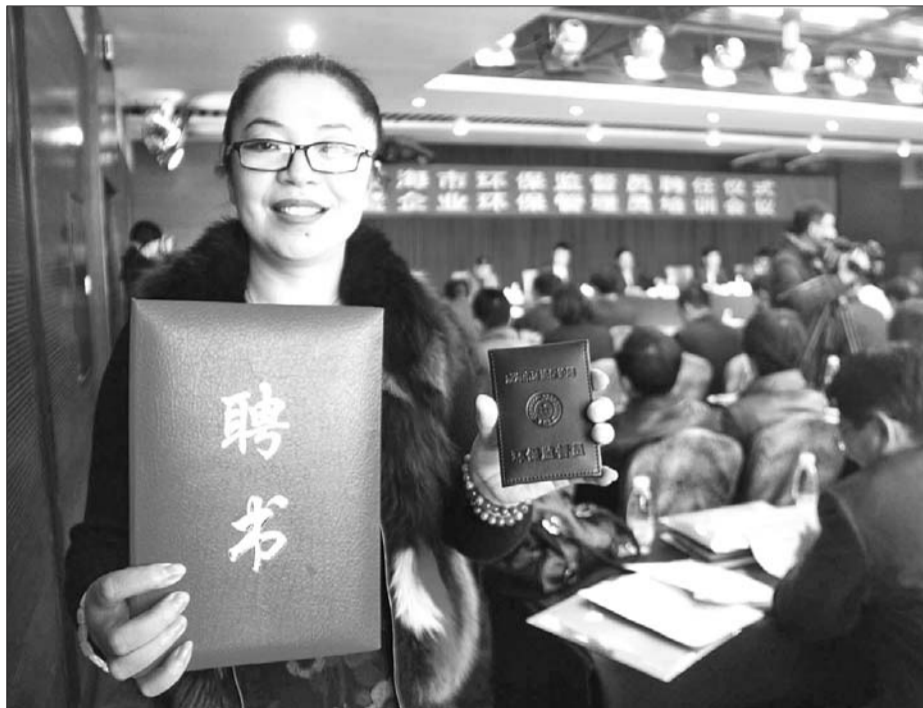 海市环保监督员聘任仪式
企业环保管理员培训会议
聘书
环保监督员